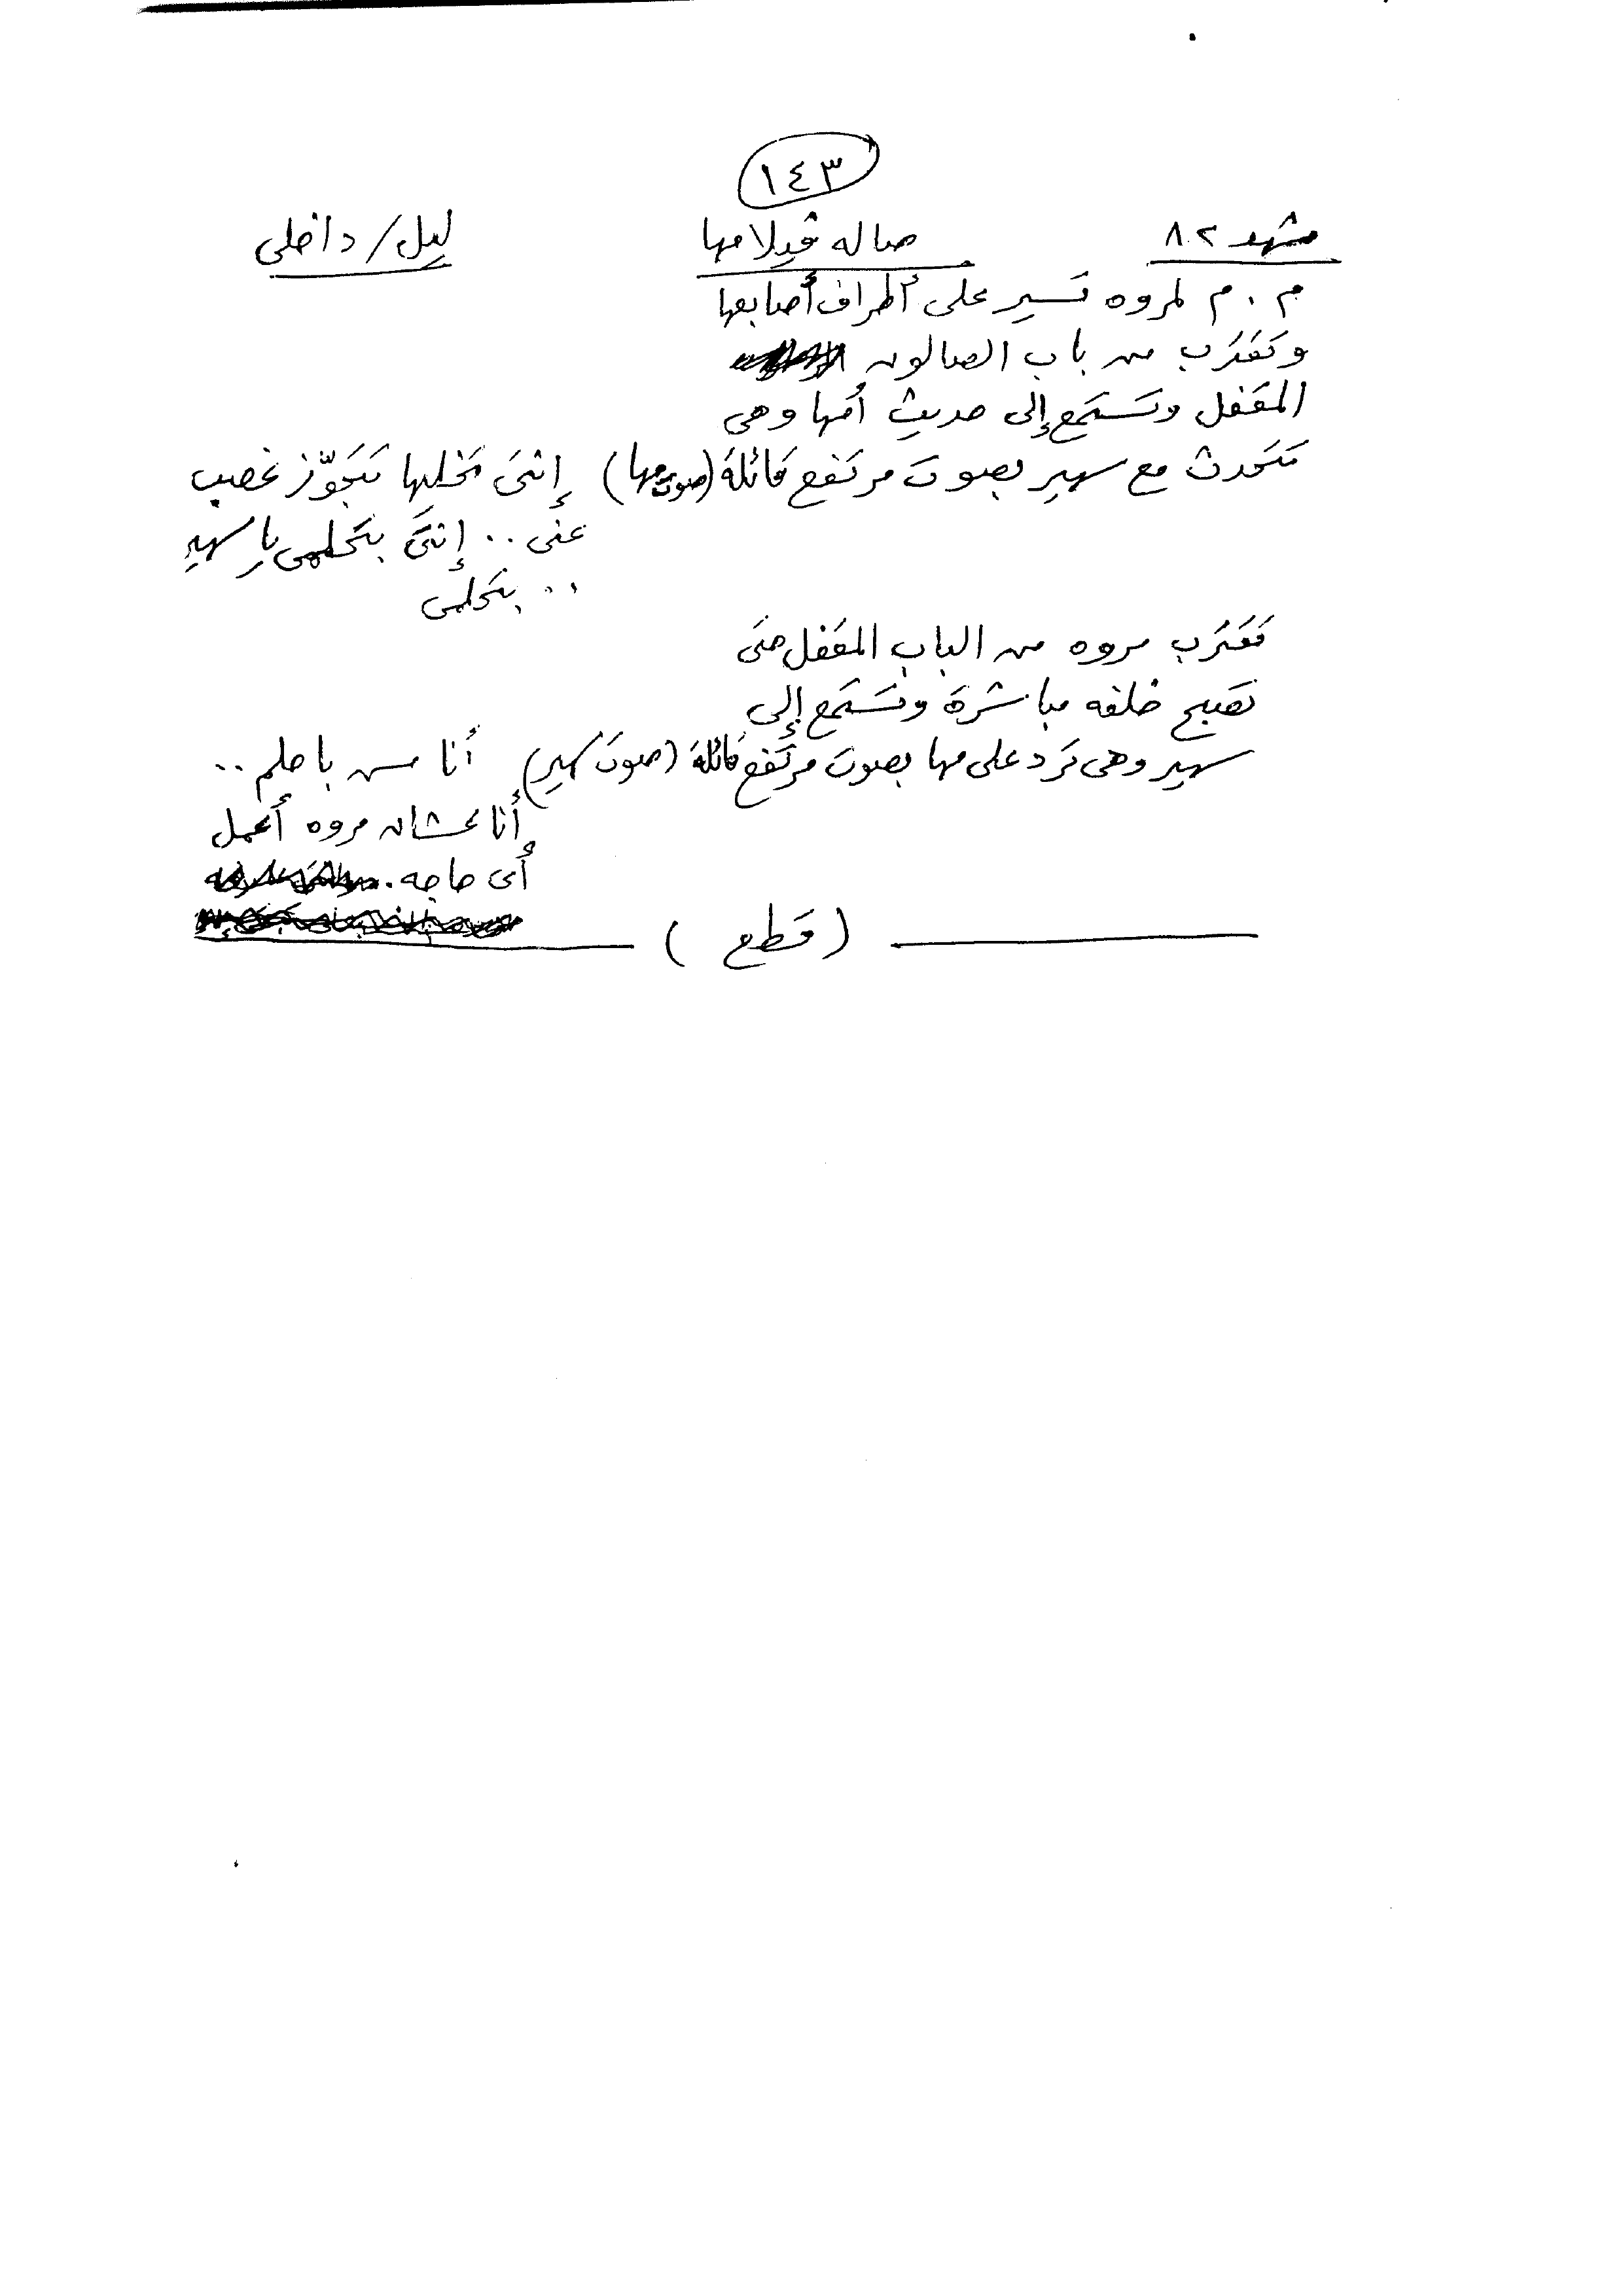 ١٤٣
مشهد ٨٢ صاله ڤيلا مها ليل/داخلى
م . م لمروه تسير على أطراف أصابعها
وتقترب من باب الصالون
المقفل وتستمع إلى حديث أمها وهى
تتحدث مع سهير بصوت مرتفع قائلة (صوت مها) إنتى تخليها تتجوّز غصب
عنى .. إنتى بتحلمى يا سهير
.. بتحلمى
تقترب مروه من الباب المقفل حتى
تصبح خلفه مباشرة وتستمع إلى
سهير وهى ترد على مها بصوت مرتفع قائلة (صوت سهير) أنا مش باحلم ..
أنا عشان مروه أعمل
أى حاجه .
(قطع)